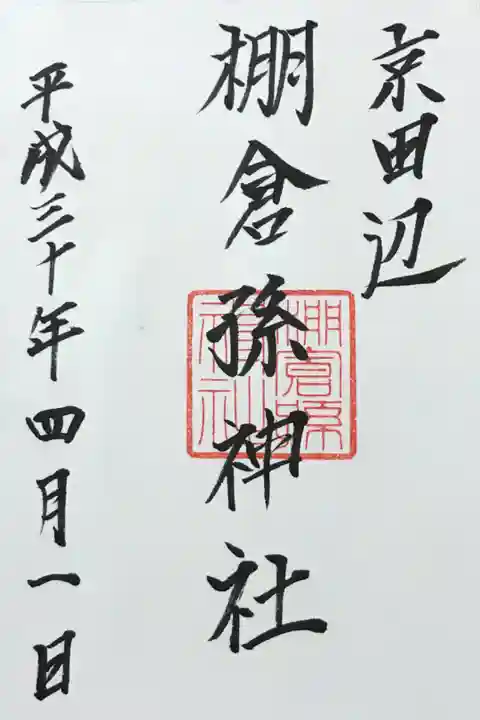 京田辺
棚倉孫神社
棚倉孫神社
平成三十年四月一日